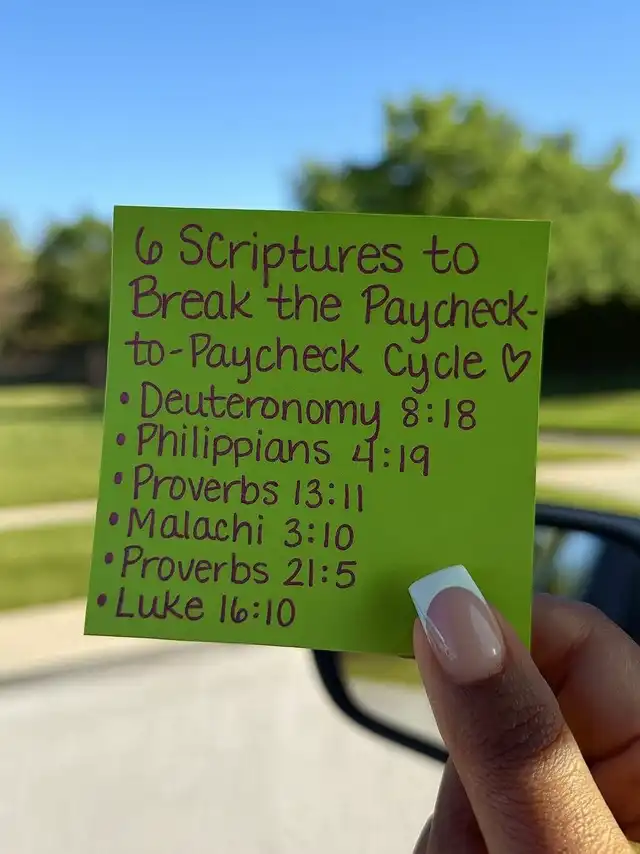 6 Scriptures to
Break the Paycheck-
to-Paycheck Cycle ♡
• Deuteronomy 8:18
• Philippians 4:19
• Proverbs 13:11
• Malachi 3:10
• Proverbs 21:5
• Luke 16:10